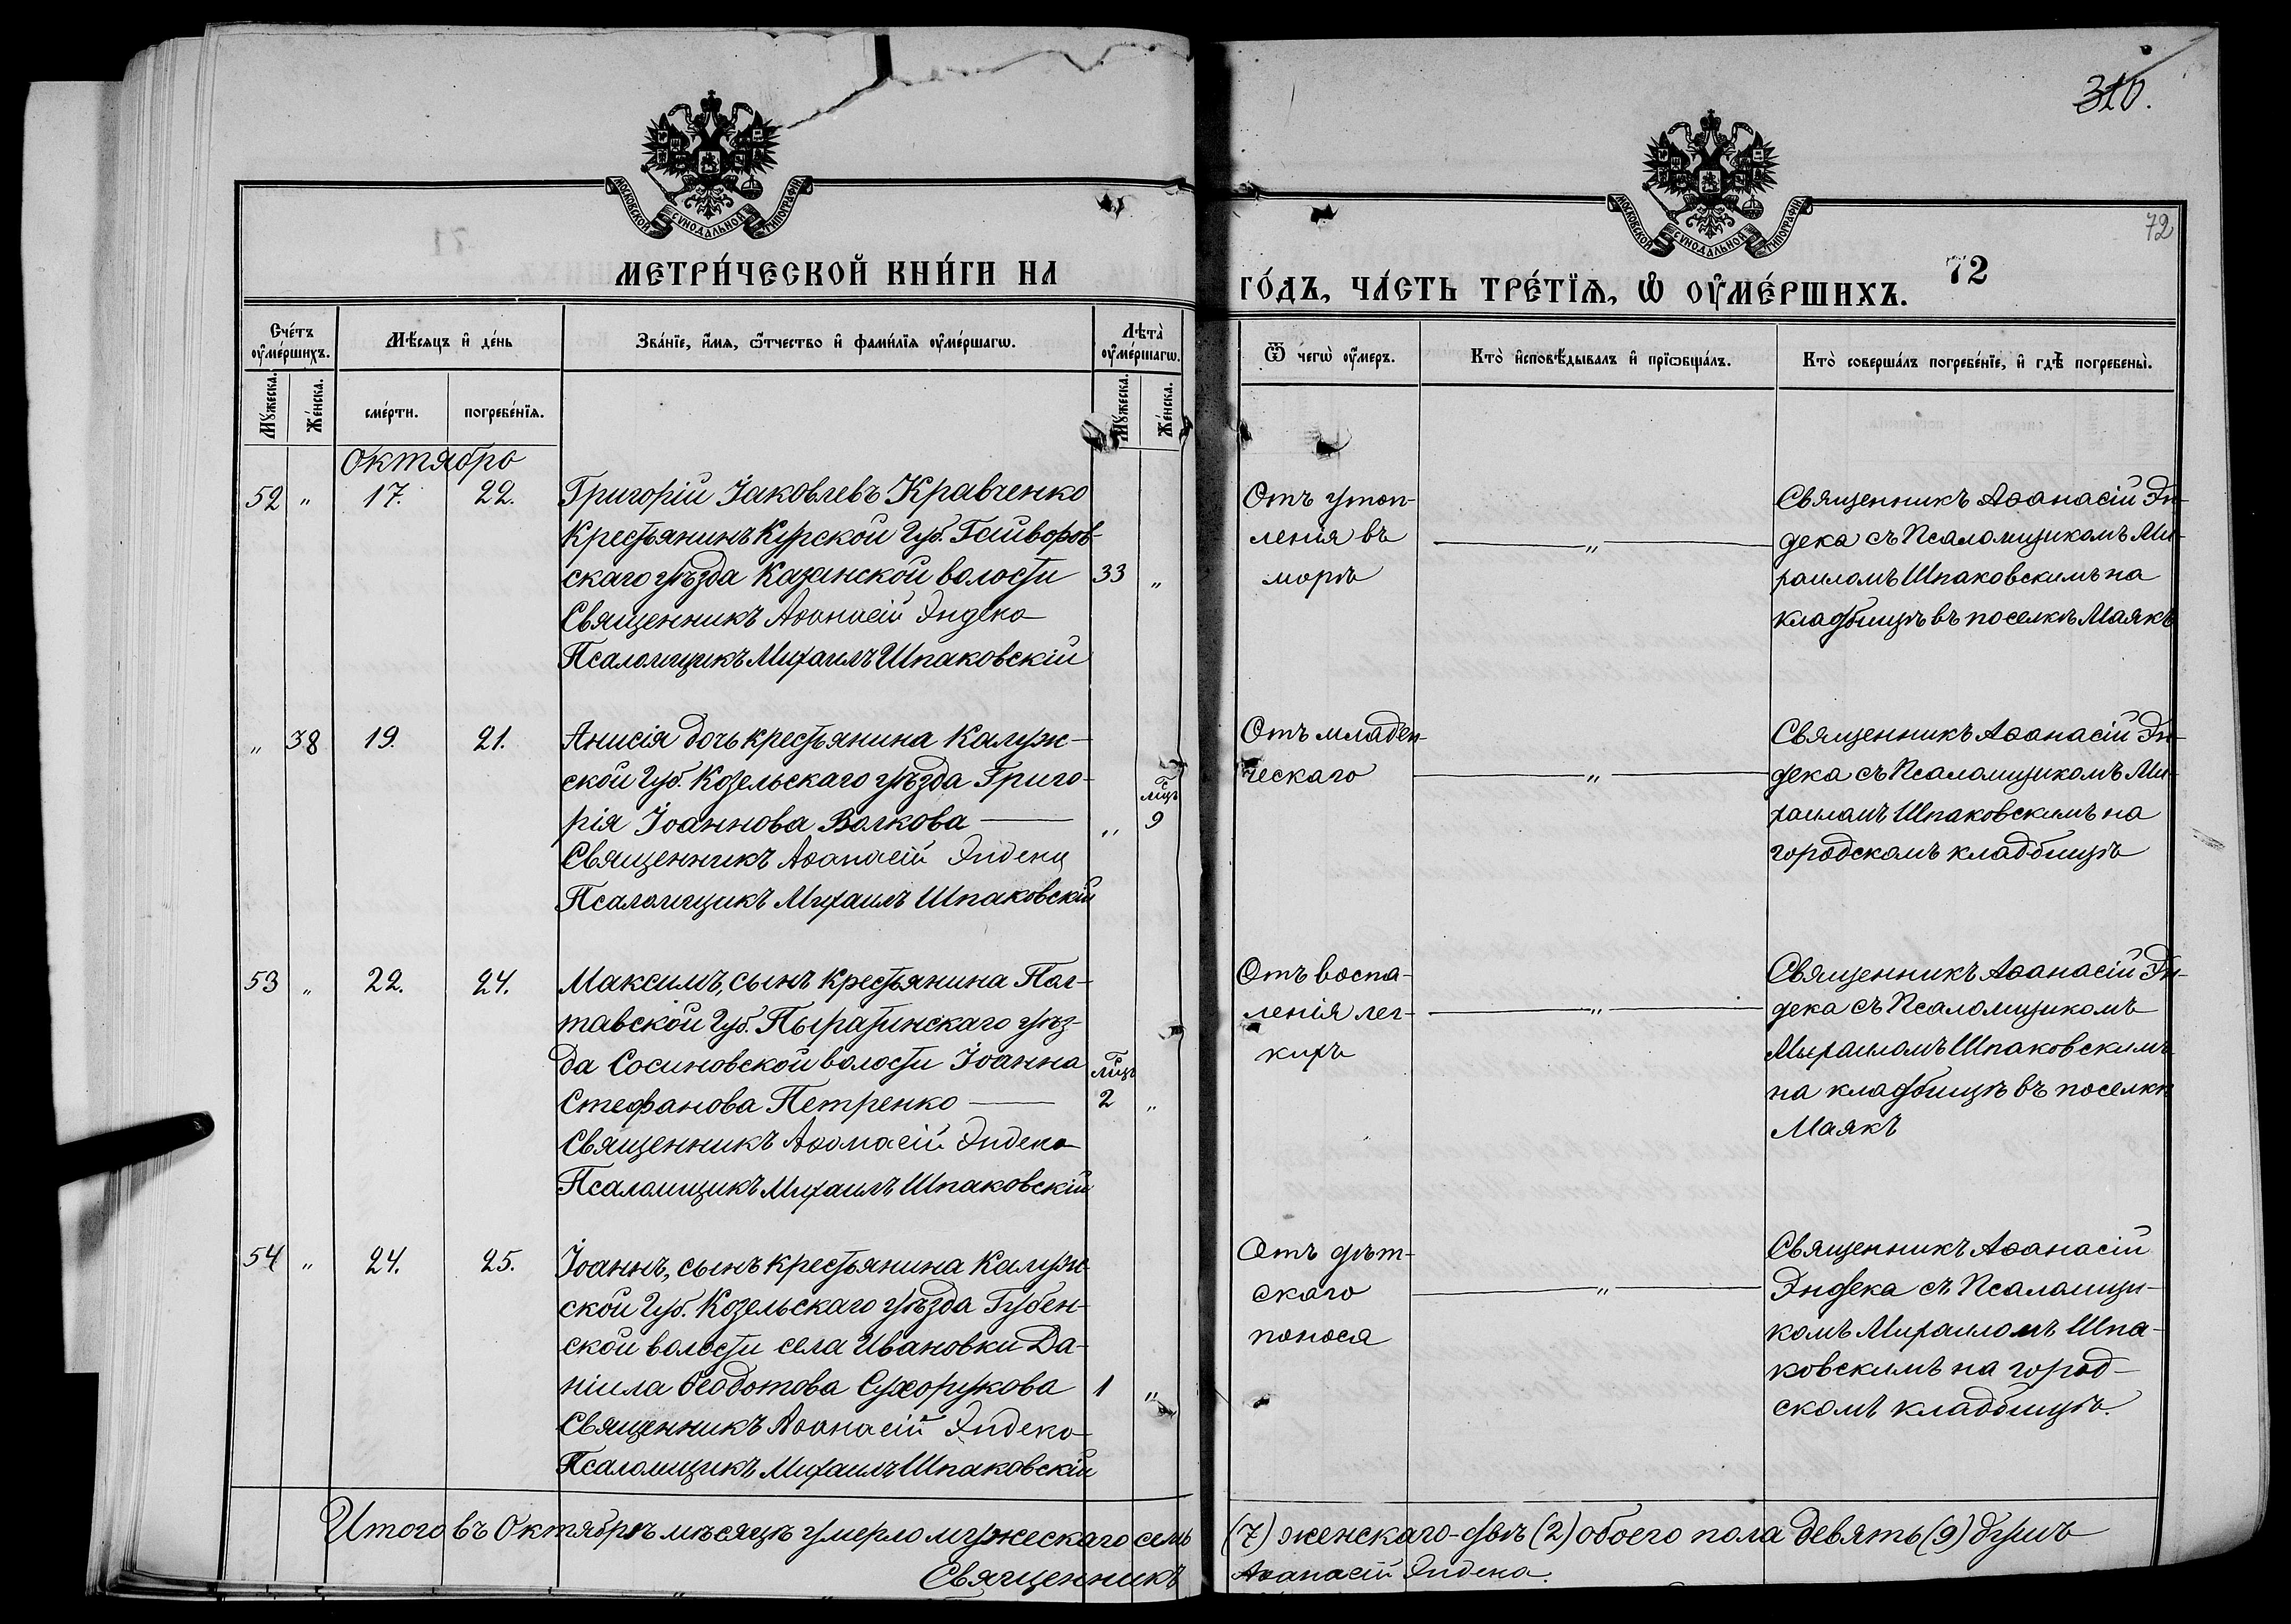 310.
МОСКОВСКОЙ СУНОДАЛЬНОЙ ТИПОГРАФІИ
МОСКОВСКОЙ СУНОДАЛЬНОЙ ТИПОГРАФІИ
72
МЕТРИ́ЧЕСКОЙ КНИ́ГИ НА
ГО́ДЪ, ЧА́СТЬ ТРЕ́ТЇѦ, Ѡ҆ ОУ҆МЕ́РШИХЪ. 72
Сче́тъ оу҆ме́ршихъ.
Мѣ́сяцъ и҆ де́нь
Зва́нїе, и҆́мя, ѻ҆́тчество и҆ фами́лїя оу҆ме́ршагѡ.
Лѣта̀ оу҆ме́ршагѡ.
Ѿ чегѡ̀ оу҆́меръ.
Кто̀ и҆сповѣ́дывалъ и҆ прїѡбща́лъ.
Кто̀ соверша́лъ погребе́нїе, и҆ гдѣ̀ погребены̀.
Мꙋ́жеска.
Же́нска.
сме́рти.
погребе́нїя.
Мꙋ́жеска.
Же́нска.
Октябрь
52 " 17. 22. Григорій Іаковлевъ Кравченко
Крестьянинъ Курской Губ. Гайворов-
скаго уѣзда Казанской волости 33 "
Священникъ Аѳанасій Эндека
Псаломщикъ Михаилъ Шпаковскій
Отъ утоп-
ленія въ
морѣ
"
Священникъ Аѳанасій Эн-
дека съ Псаломщикомъ Ми-
хаиломъ Шпаковскимъ на
кладбищѣ въ поселкѣ Маякъ
" 38 19. 21. Анисія дочь крестьянина Калуж-
ской Губ. Козельскаго уѣзда Григо-
рія Іоаннова Волкова " мѣс 9
Священникъ Аѳанасій Эндека
Псаломщикъ Михаилъ Шпаковскій
Отъ младен-
ческаго
"
Священникъ Аѳанасій Эн-
дека съ Псаломщикомъ Ми-
хаиломъ Шпаковскимъ на
городскомъ кладбищѣ
53 " 22. 24. Максимъ, сынъ крестьянина Пол-
тавской Губ. Пырятинскаго уѣз-
да Сосиновской волости Іоанна
Стефанова Петренко мѣс 2 "
Священникъ Аѳанасій Эндека
Псаломщикъ Михаилъ Шпаковскій
Отъ воспа-
ленія лег-
кихъ
"
Священникъ Аѳанасій Эн-
дека съ Псаломщикомъ
Михаиломъ Шпаковскимъ
на кладбищѣ въ поселкѣ
Маякъ
54 " 24. 25. Іоаннъ, сынъ крестьянина Калуж-
ской Губ. Козельскаго уѣзда Губен-
ской волости села Ивановки Да-
ніила Ѳеодотова Сухорукова 1 "
Священникъ Аѳанасій Эндека
Псаломщикъ Михаилъ Шпаковскій
Отъ дѣт-
скаго
поноса
"
Священникъ Аѳанасій
Эндека съ Псаломщи-
комъ Михаиломъ Шпа-
ковскимъ на город-
скомъ кладбищѣ.
Итого въ Октябрѣ мѣсяцѣ умерло мужескаго семь (7) женскаго - двѣ (2) обоего пола девять (9) душъ
Священникъ Аѳанасій Эндека.